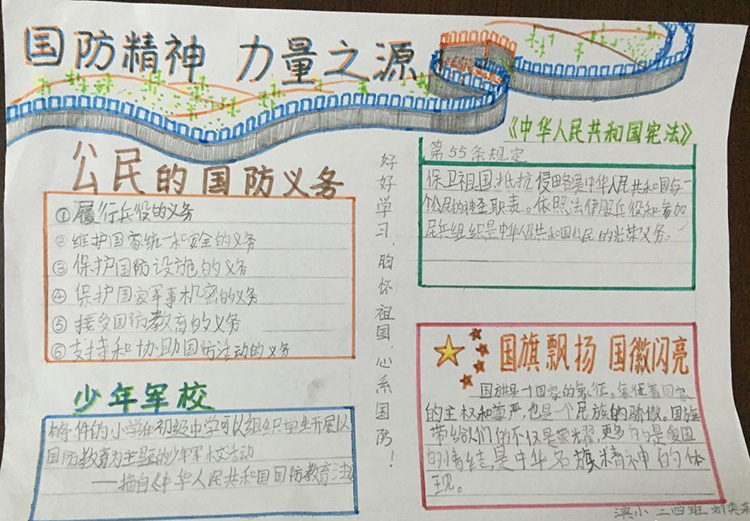 国防精神 力量之源
公民的国防义务
①履行兵役的义务
②维护国家统一和安全的义务
③保护国防设施的义务
④保护国家军事机密的义务
⑤接受国防教育的义务
⑥支持和协助国防活动的义务
少年军校
有条件的小学和初级中学可以组织学生开展以
国防教育为主题的少年军校活动
——摘自《中华人民共和国国防教育法》
好好学习,胸怀祖国,心系国防!
《中华人民共和国宪法》
第55条规定
保卫祖国抵抗侵略是中华人民共和国每一
个公民的神圣职责。依照法律服兵役和参加
民兵组织是中华人民共和国公民的光荣义务。
国旗飘扬 国徽闪亮
国旗是一个国家的象征。象征着国家
的主权和尊严,也是一个民族的骄傲。国旗
带给人们的不仅是荣耀,更多的是爱国
的情结,是中华名族精神的体
现。
滨小 二四班